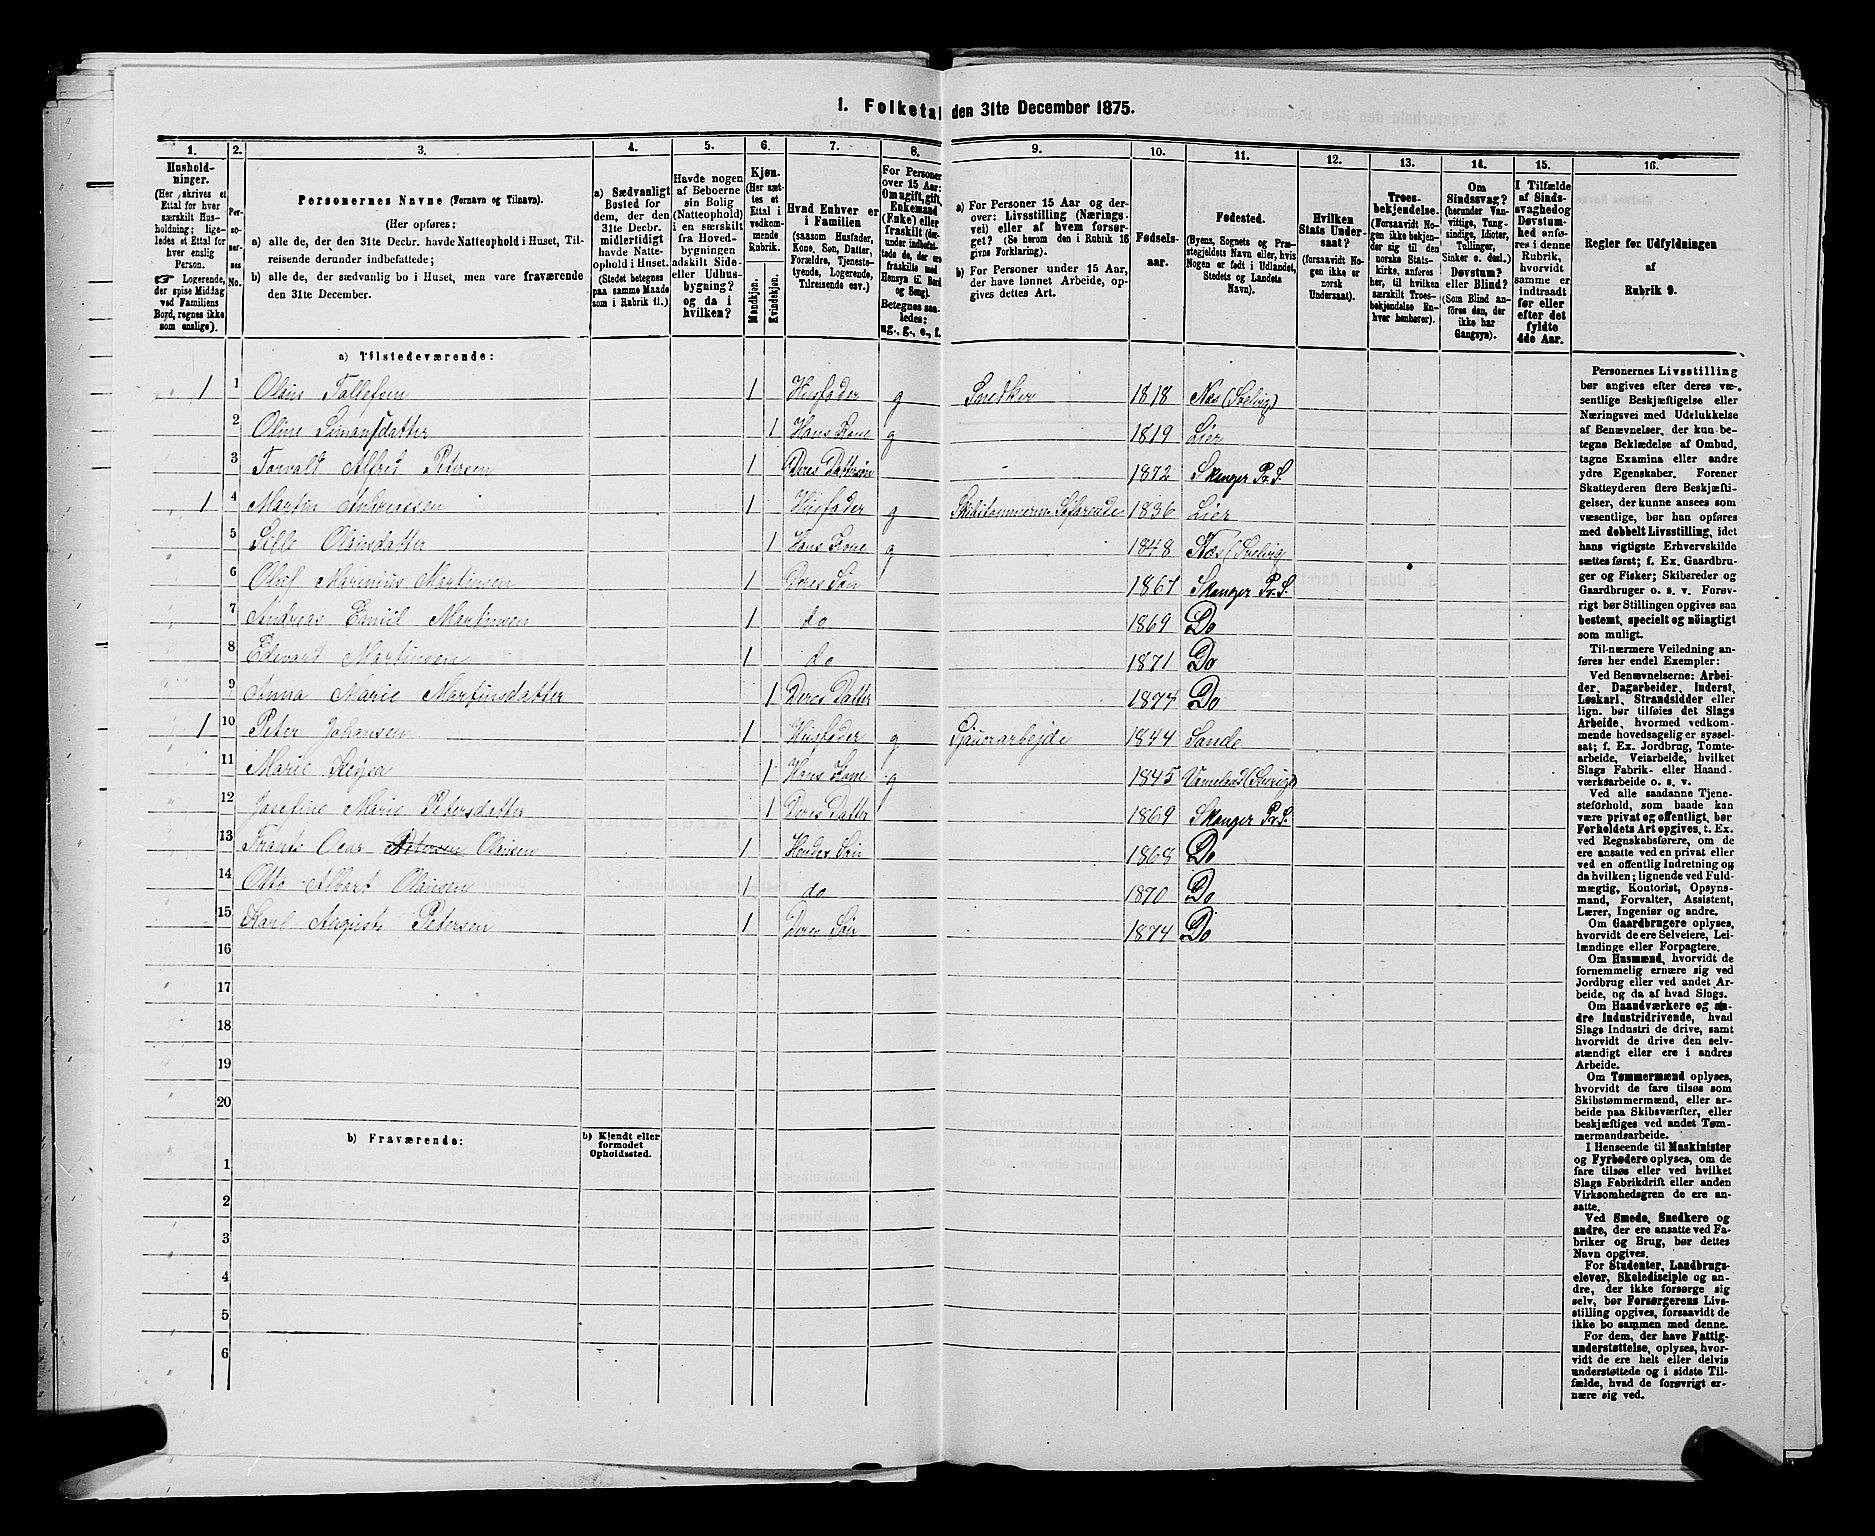 1. Folketal den 31te December 1875.
1. 2. 3. 4. 5. 6. 7. 8. 9. 10. 11. 12. 13. 14. 15. 16.
Hushold-
ninger.
(Her skrives et
Ettal for hver
særskilt Hus-
holdning; lige-
ledes et Ettal for
hver enslig
Person.
☞ Logerende,
der spise Middag
ved Familiens
Bord, regnes ikke
som enslige).
Per-
soner-
nes
No.
Personernes Navne (Fornavn og Tilnavn).
(Her opføres:
a) alle de, der den 31te Decbr. havde Natteophold i Huset, Til-
reisende derunder indbefattede;
b) alle de, der sædvanlig bo i Huset, men vare fraværende
den 31te December.
a) Sædvanligt
Bosted for
dem, der den
31te Decbr.
midlertidigt
havde Natte-
ophold i Huset.
(Stedet betegnes
paa samme Maade
som i Rubrik 11.)
Havde nogen
af Beboerne
sin Bolig
(Natteophold)
i en særskilt
fra Hoved-
bygningen
adskilt Side-
eller Udhus-
bygning?
og da i
hvilken?
Kjøn.
(Her sæt-
tes et
Ettal i
vedkom-
mende
Rubrik.
Mandkjøn.
Kvindekjøn.
Hvad Enhver er
i Familien
(saasom Husfader,
Kone, Søn, Datter,
Forældre, Tjeneste-
tyende, Logerende,
Tilreisende osv.)
For Personer
over 15 Aar:
Om ugift, gift,
Enkemand
(Enke) eller
fraskilt (der-
under indbefat-
tede de, der ere
fraskilte med
Hensyn til Bord
og Seng).
Betegnes saa-
ledes:
ug., g., e., f.
a) For Personer 15 Aar og der-
over: Livsstilling (Nærings-
vei) eller af hvem forsør-
get? (Se herom den i Rubrik 16
givne Forklaring).
b) For Personer under 15 Aar,
der have lønnet Arbeide, op-
gives dettes Art.
Fødsels-
aar.
Fødested.
(Byens, Sognets og Præ-
stegjeldets Navn eller, hvis
Nogen er født i Udlandet,
Stedets og Landets
Navn).
Hvilken
Stats Under-
saat?
(forsaavidt No-
gen ikke er
norsk
Undersaat).
Troes-
bekjendelse.
(Forsaavidt No-
gen ikke bekjen-
der sig til den
norske Stats-
kirke, anføres
her, til hvilken
særskilt Troes-
bekjendelse En-
hver henhører).
Om
Sindssvag?
(herunder Van-
vittige, Tung-
sindige, Idioter,
Tullinger,
Sinker o. desl.)
Døvstum?
eller Blind?
(Som Blind an-
føres den, der
ikke har
Gangsyn).
I Tilfælde
af Sinds-
svaghed og
Døvstum-
hed anfø-
res i denne
Rubrik,
hvorvidt
samme er
indtraadt
før eller
efter det
fyldte
4de Aar.
Regler for Udfyldningen
af
Rubrik 9.
a) Tilstedeværende:
1 1 Olaus Tollefsen 1 Husfader g Snedker 1818 Næs (Svelvig)
2 Oline Simonsdatter 1 Hans Kone g 1819 Lier
3 Torvald Alfred Petersen 1 Deres Dattersøn 1872 Skanger Pr. S.
1 4 Martin Andreassen 1 Husfader g Søfarende 1836 Lier
5 Sille Olausdatter 1 Hans Kone g 1848 Næs (Svelvig)
6 Oluf Marinius Martinsen 1 Deres Søn 1867 Skanger Pr. S.
7 Andreas Emiil Martinsen 1 do 1869 Do
8 Edevart Martinsen 1 do 1871 Do
9 Anna Marie Martinsdatter 1 Deres Datter 1874 Do
1 10 Peter Johansen 1 Husfader g Sjauerarbejde 1844 Sande
11 Marie Kajsa 1 Hans Kone g 1845 Vermeland (Sverige)
12 Josefine Marie Petersdatter 1 Deres Datter 1869 Skanger Pr. S.
13 Frants Oscar Petersen Olausen 1 Hendes Søn 1868 Do
14 Otto Albert Olausen 1 do 1870 Do
15 Karl August Petersen 1 Deres Søn 1874 Do
16
17
18
19
20
b) Fraværende:
b) Kjendt eller
formodet
Opholdssted.
1
2
3
4
5
6
Personernes Livsstilling
bør angives efter deres væ-
sentlige Beskjæftigelse eller
Næringsvei med Udelukkelse
af Benævnelser, der kun be-
tegne Beklædelse af Ombud,
tagne Examina eller andre
ydre Egenskaber. Forener
Skatteyderen flere Beskjæfti-
gelser, der kunne ansees som
væsentlige, bør han opføres
med dobbelt Livsstilling, idet
hans vigtigste Erhvervskilde
sættes først; f. Ex. Gaardbru-
ger og Fisker; Skibsreder og
Gaardbruger o. s. v. Forøv-
rigt bør Stillingen opgives saa
bestemt, specielt og nöiagtigt
som muligt.
Til nærmere Veiledning an-
føres her endel Exempler:
Ved Benævnelserne: Arbei-
der, Dagarbeider, Inderst,
Løskarl, Strandsidder eller
lign. bør tilføies det Slags
Arbeide, hvormed vedkom-
mende hovedsagelig er syssel-
sat; f. Ex. Jordbrug, Tomte-
arbeide, Veiarbeide, hvilket
Slags Fabrik- eller Haand-
værksarbeide o. s. v.
Ved alle saadanne Tjene-
steforhold, som baade kan
være privat og offentligt, bør
Forholdets Art opgives, t. Ex.
ved Regnskabsførere, om de
ere ansatte ved en privat eller
ved en offentlig Indretning og
da hvilken; lignende ved Fuld-
mægtig, Kontorist, Opsyns-
mand, Forvalter, Assistent,
Lærer, Ingeniør og andre.
Om Gaardbrugere oplyses,
hvorvidt de ere Selveiere, Lei-
lændinge eller Forpagtere.
Om Husmænd, hvorvidt de
fornemmelig ernære sig ved
Jordbrug eller ved andet Ar-
beide, og da af hvad Slags.
Om Haandværkere og an-
dre Industridrivende, hvad
Slags Industri de drive, samt
hvorvidt de drive den selv-
stændigt eller ere i andres
Arbeide.
Om Tømmermænd oplyses,
hvorvidt de fare tilsøs som
Skibstømmermænd, eller ar-
beide paa Skibsværfter, eller
beskjæftiges ved andet Tøm-
mermandsarbeide.
I Henseende til Maskinister
og Fyrbødere oplyses, om de
fare tilsøs eller ved hvilket
Slags Fabrikdrift eller anden
Virksomhedsgren de ere an-
satte.
Ved Smede, Snedkere og
andre, der ere ansatte ved Fa-
briker og Brug, bør dettes
Navn opgives.
For Studenter, Landbrugs-
elever, Skoledisciple og an-
dre, der ikke forsørge sig
selv, bør Forsørgerens Livs-
stilling opgives, forsaavidt de
ikke bo sammen med denne.
For dem, der have Fattig-
understøttelse, oplyses, hvor-
vidt de ere helt eller delvis
understøttede og i sidste Til-
fælde, hvad de forøvrigt er-
nære sig ved.